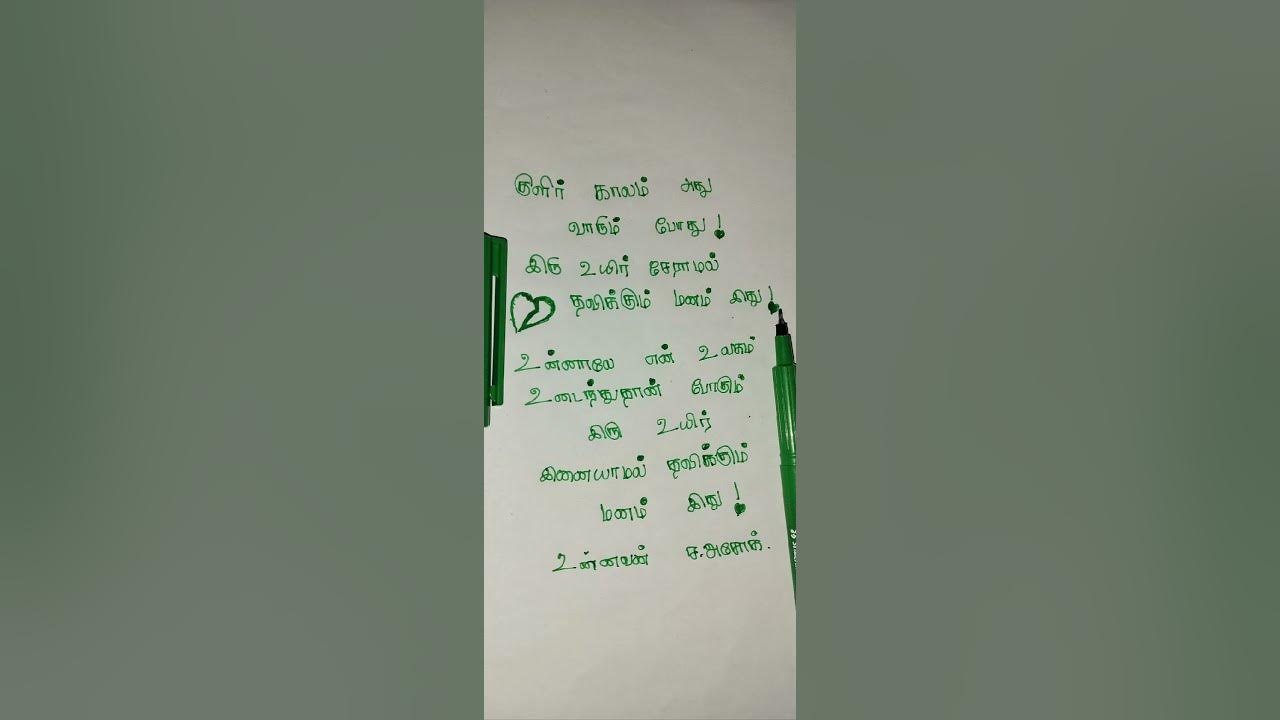 குளிர் காலம் அது
வாரும் போது!
இரு உயிர் சேராமல்
தவிக்கும் மனம் இது!
உன்னாலே என் உலகம்
உடைந்துதான் போகும்
இரு உயிர்
இனையாமல் தவிக்கும்
மனம் இது!
உன்னவன் ச.அசோக்.